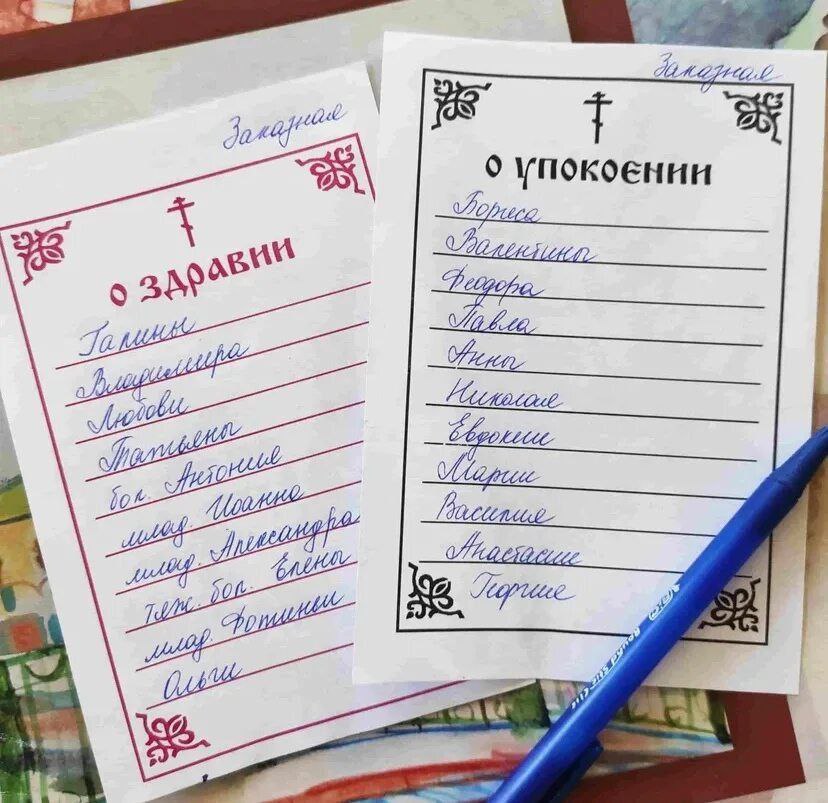 Заказная
о здравии
Галины
Владимира
Любови
Татьяны
бол. Антония
млад. Иоанна
млад. Александра
тяж. бол. Елены
млад. Фотиньи
Ольги
Заказная
о упокоєнии
Бориса
Валентины
Феодора
Павла
Анны
Николая
Евдокии
Марии
Василия
Анастасии
Георгия
Round Stic